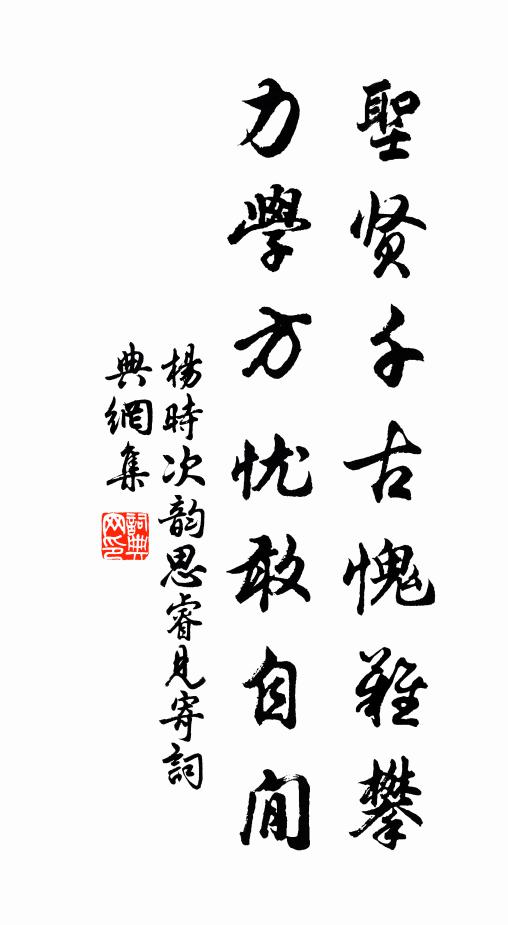 聖贤千古愧難攀
力學方忧敢自閒
楊時次韵思睿見寄詞
典網集
詞典网印